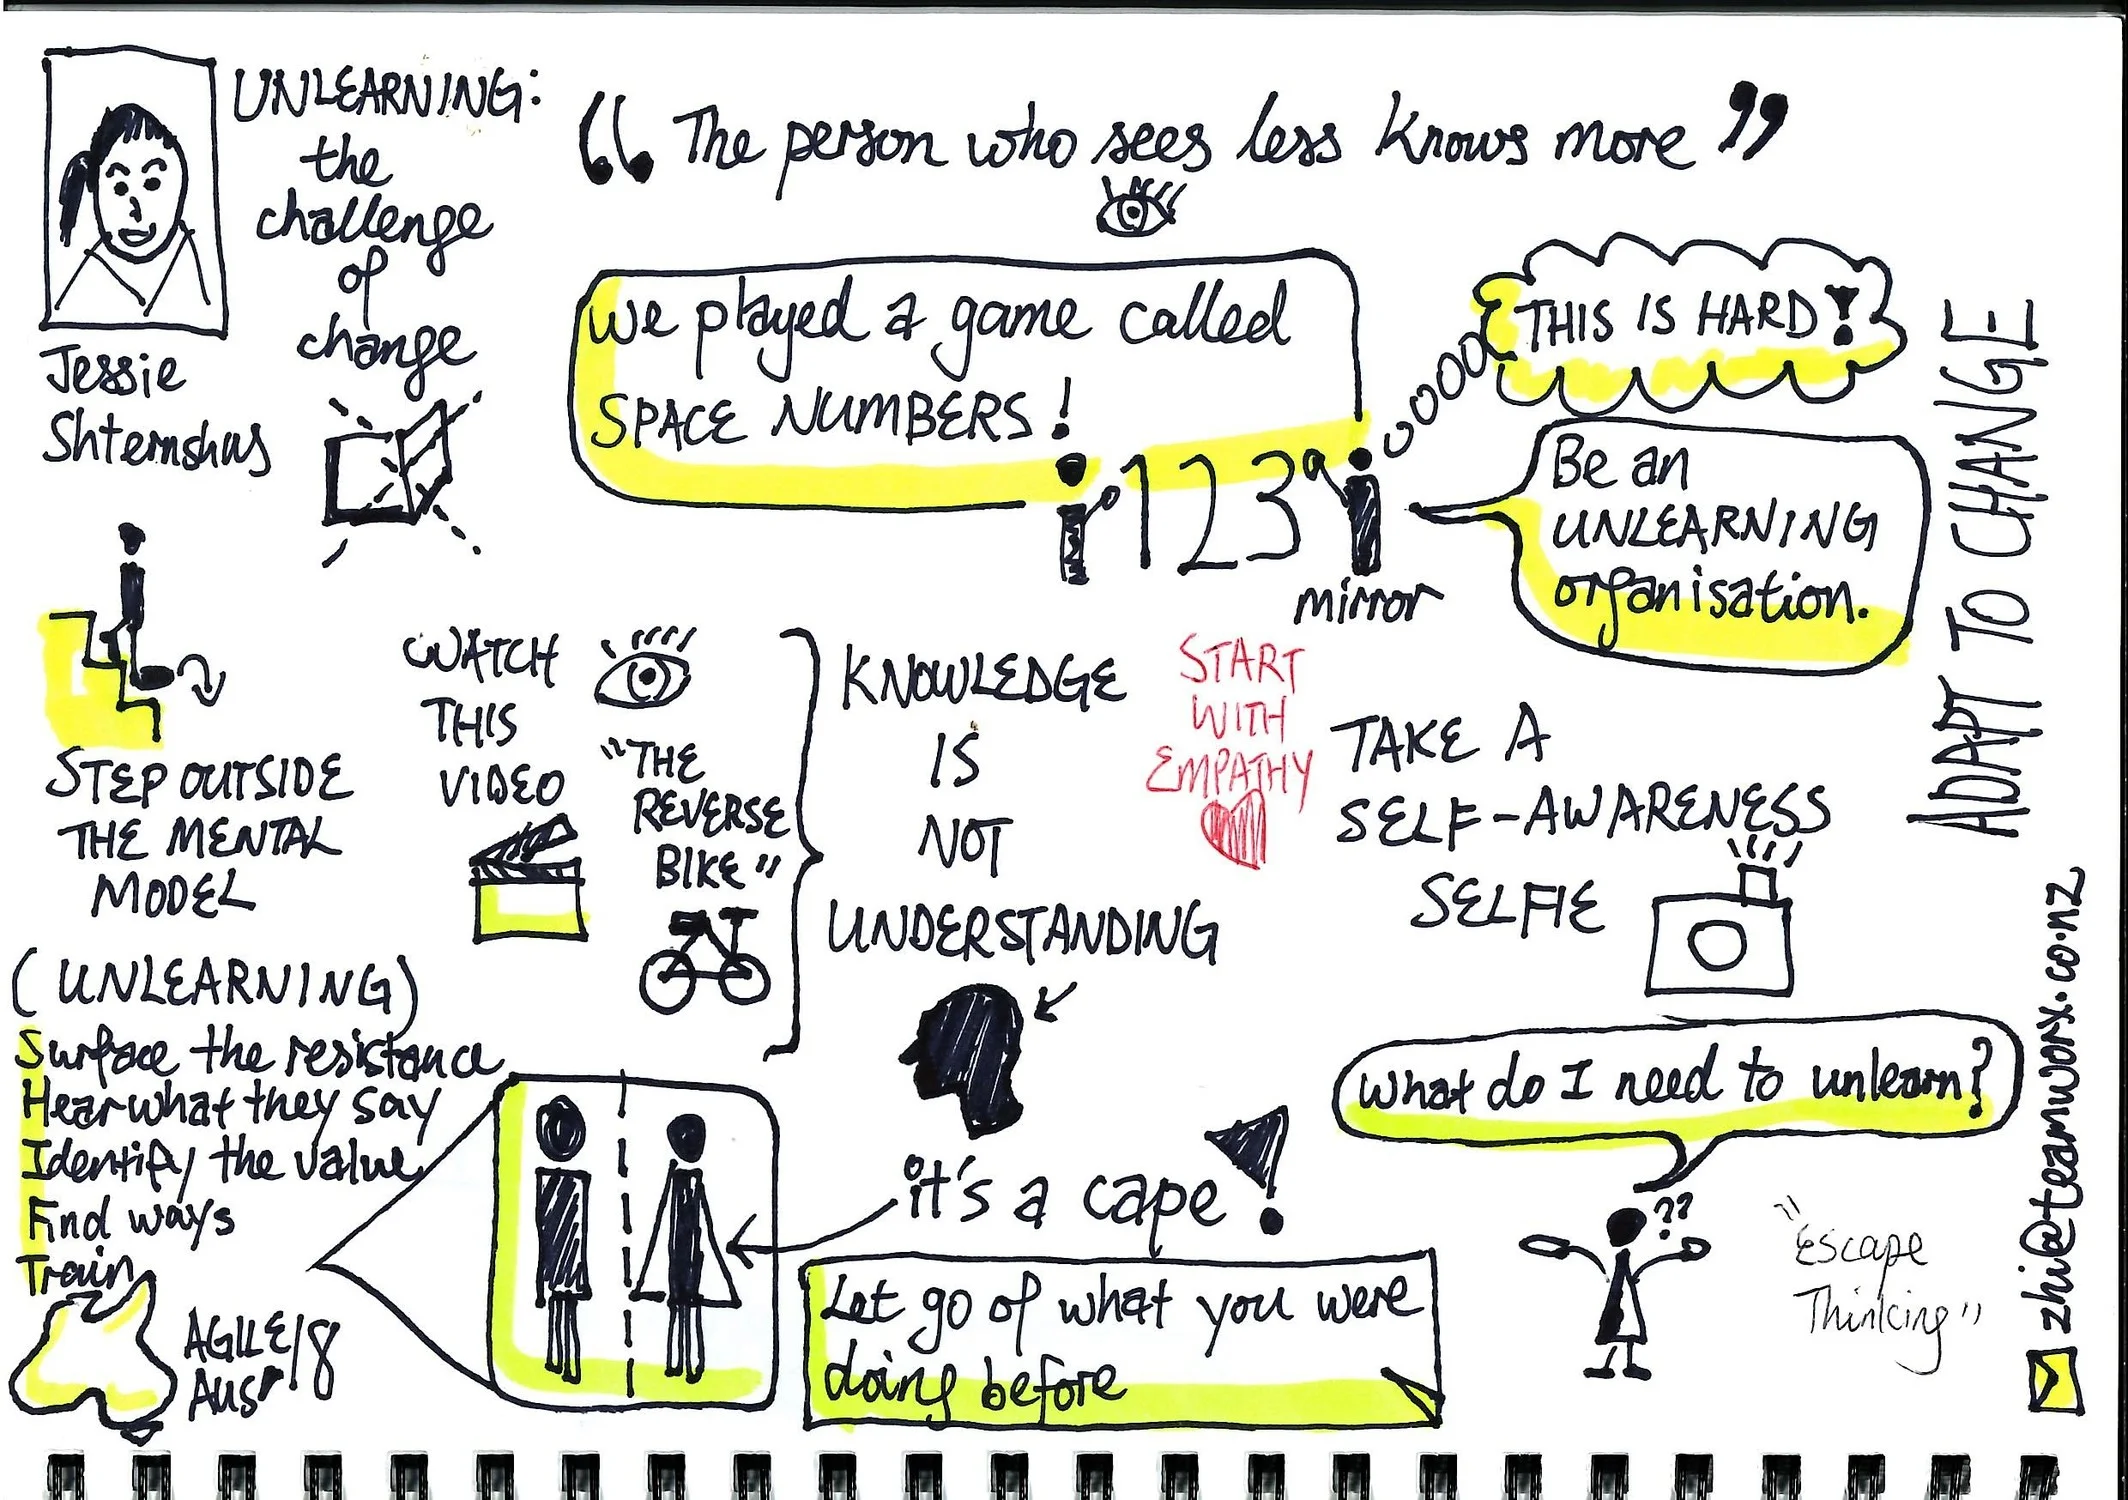 UNLEARNING:
the
challenge
of
change
Jessie
Shternshus
“The person who sees less knows more”
we played a game called
SPACE NUMBERS!
123
mirror
THIS IS HARD!
Be an
UNLEARNING
organisation.
ADAPT TO CHANGE
STEP OUTSIDE
THE MENTAL
MODEL
WATCH
THIS
VIDEO
"THE
REVERSE
BIKE"
KNOWLEDGE
IS
NOT
UNDERSTANDING
START
WITH
EMPATHY
TAKE A
SELF-AWARENESS
SELFIE
(UNLEARNING)
Surface the resistance
Hear what they say
Identify the value
Find ways
Train
AGILE/18
AUST
it's a cape!
Let go of what you were
doing before
What do I need to unlearn?
??
"Escape
Thinking"
zhi@teamworx.co.nz